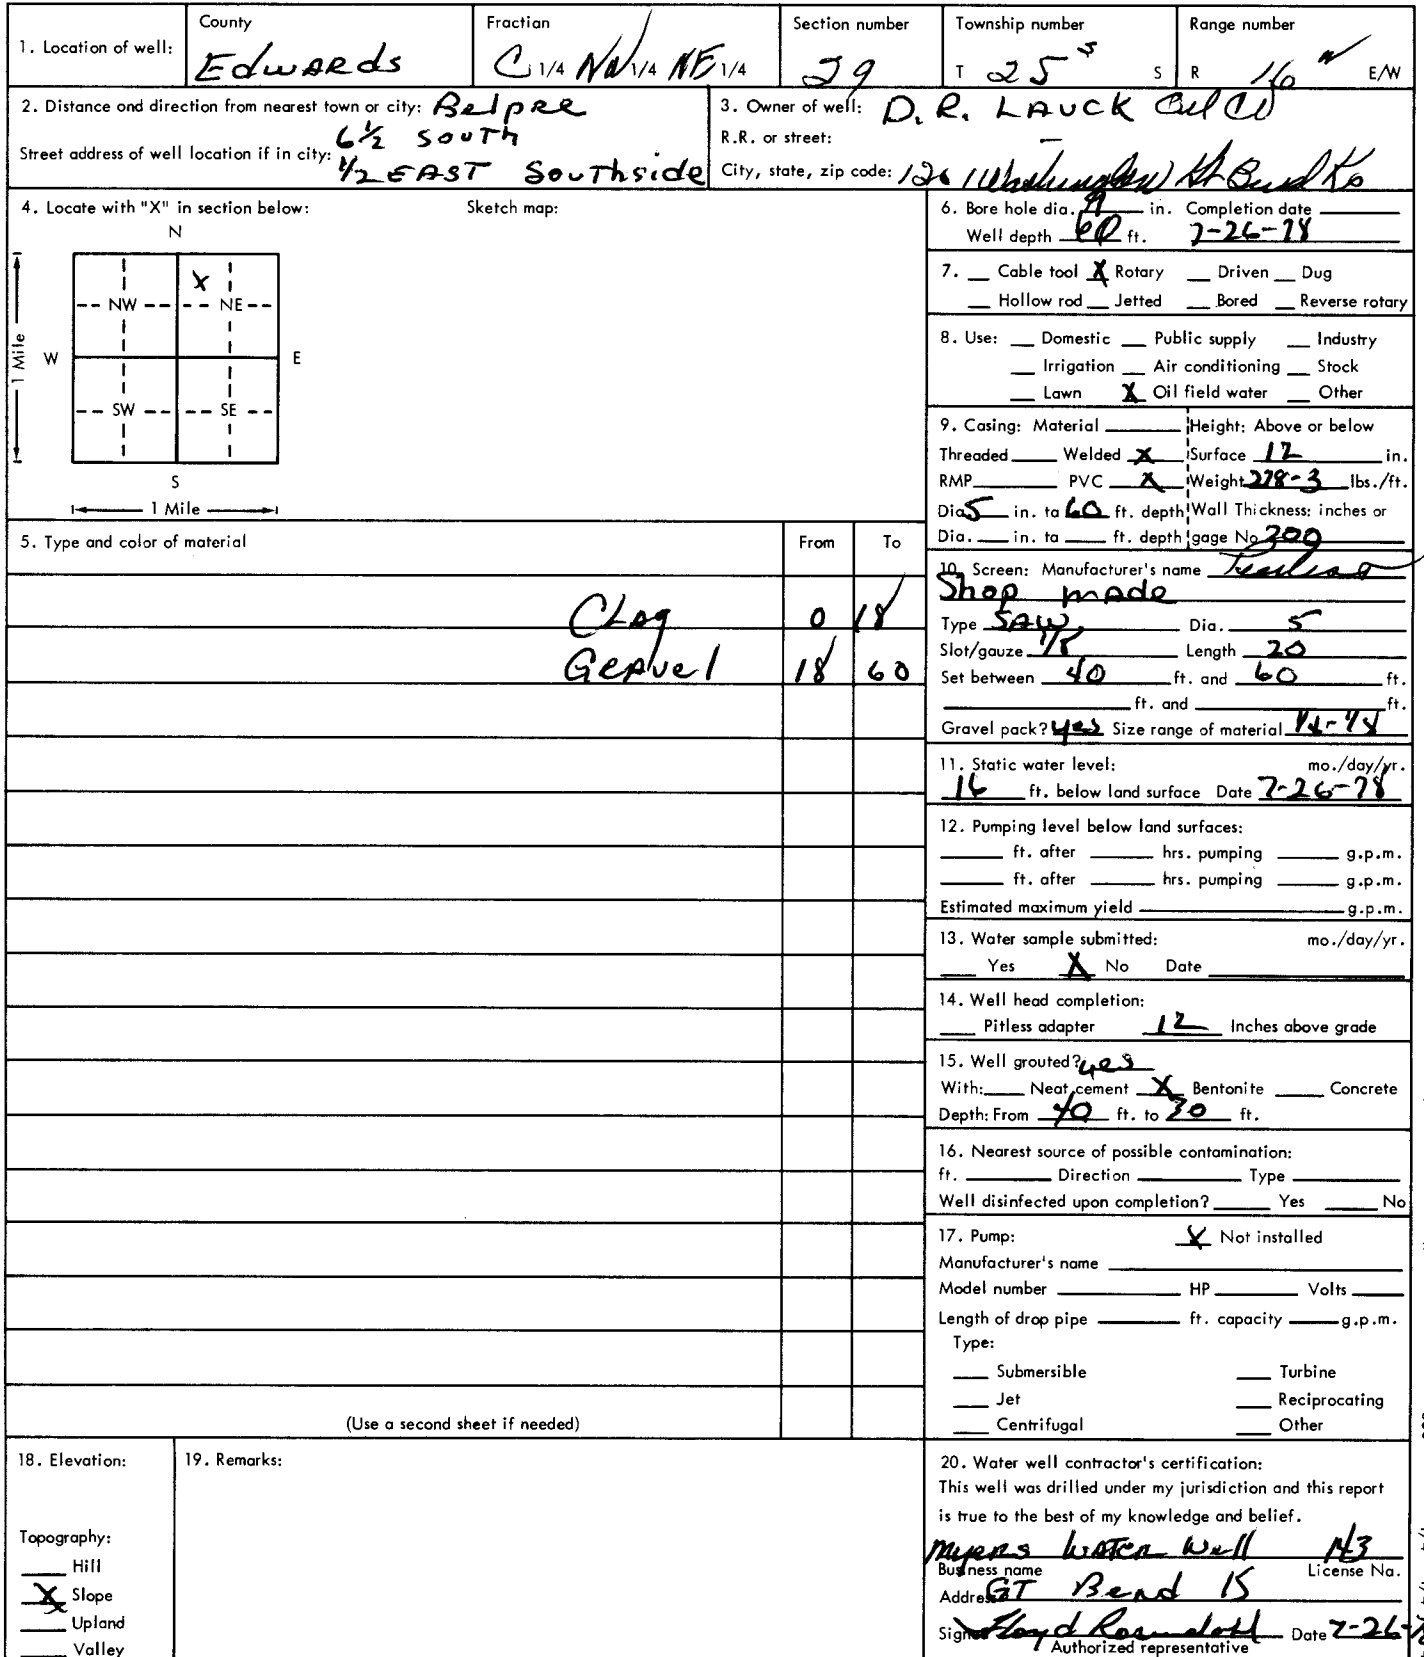 1. Location of well: County Edwards Fraction C 1/4 NW 1/4 NE 1/4 Section number 29 Township number T 25 S S Range number R 16 W E/W
2. Distance and direction from nearest town or city: Belpre
6 1/2 South
Street address of well location if in city: 1/2 EAST Southside
3. Owner of well: D. R. LAUCK Oil Co
R.R. or street:
City, state, zip code: 126 Washington Gt Bend Ks
4. Locate with "X" in section below: Sketch map:
N
X
NW NE
W E
1 Mile
SW SE
S
1 Mile
6. Bore hole dia. 9 in. Completion date
Well depth 60 ft. 7-26-78
7. Cable tool X Rotary Driven Dug
Hollow rod Jetted Bored Reverse rotary
8. Use: Domestic Public supply Industry
Irrigation Air conditioning Stock
Lawn X Oil field water Other
9. Casing: Material Height: Above or below
Threaded Welded X Surface 12 in.
RMP PVC X Weight 278-3 lbs./ft.
Dia. 5 in. to 60 ft. depth Wall Thickness: inches or
Dia. in. to ft. depth gage No 200
5. Type and color of material From To
Clay 0 18
Gravel 18 60
(Use a second sheet if needed)
10. Screen: Manufacturer's name
Shop made
Type SAW Dia. 5
Slot/gauze 1/8 Length 20
Set between 40 ft. and 60 ft.
ft. and ft.
Gravel pack? yes Size range of material
11. Static water level: mo./day/yr.
16 ft. below land surface Date 7-26-78
12. Pumping level below land surfaces:
ft. after hrs. pumping g.p.m.
ft. after hrs. pumping g.p.m.
Estimated maximum yield g.p.m.
13. Water sample submitted: mo./day/yr.
Yes X No Date
14. Well head completion:
Pitless adapter 12 Inches above grade
15. Well grouted? yes
With: Neat cement X Bentonite Concrete
Depth: From 40 ft. to ft.
16. Nearest source of possible contamination:
ft. Direction Type
Well disinfected upon completion? Yes No
17. Pump: X Not installed
Manufacturer's name
Model number HP Volts
Length of drop pipe ft. capacity g.p.m.
Type:
Submersible Turbine
Jet Reciprocating
Centrifugal Other
18. Elevation:
Topography:
Hill
X Slope
Upland
Valley
19. Remarks:
20. Water well contractor's certification:
This well was drilled under my jurisdiction and this report
is true to the best of my knowledge and belief.
Myers Water Well 143
Business name License No.
Address GT Bend 15
Signed Floyd Rosendahl Date 7-26-78
Authorized representative